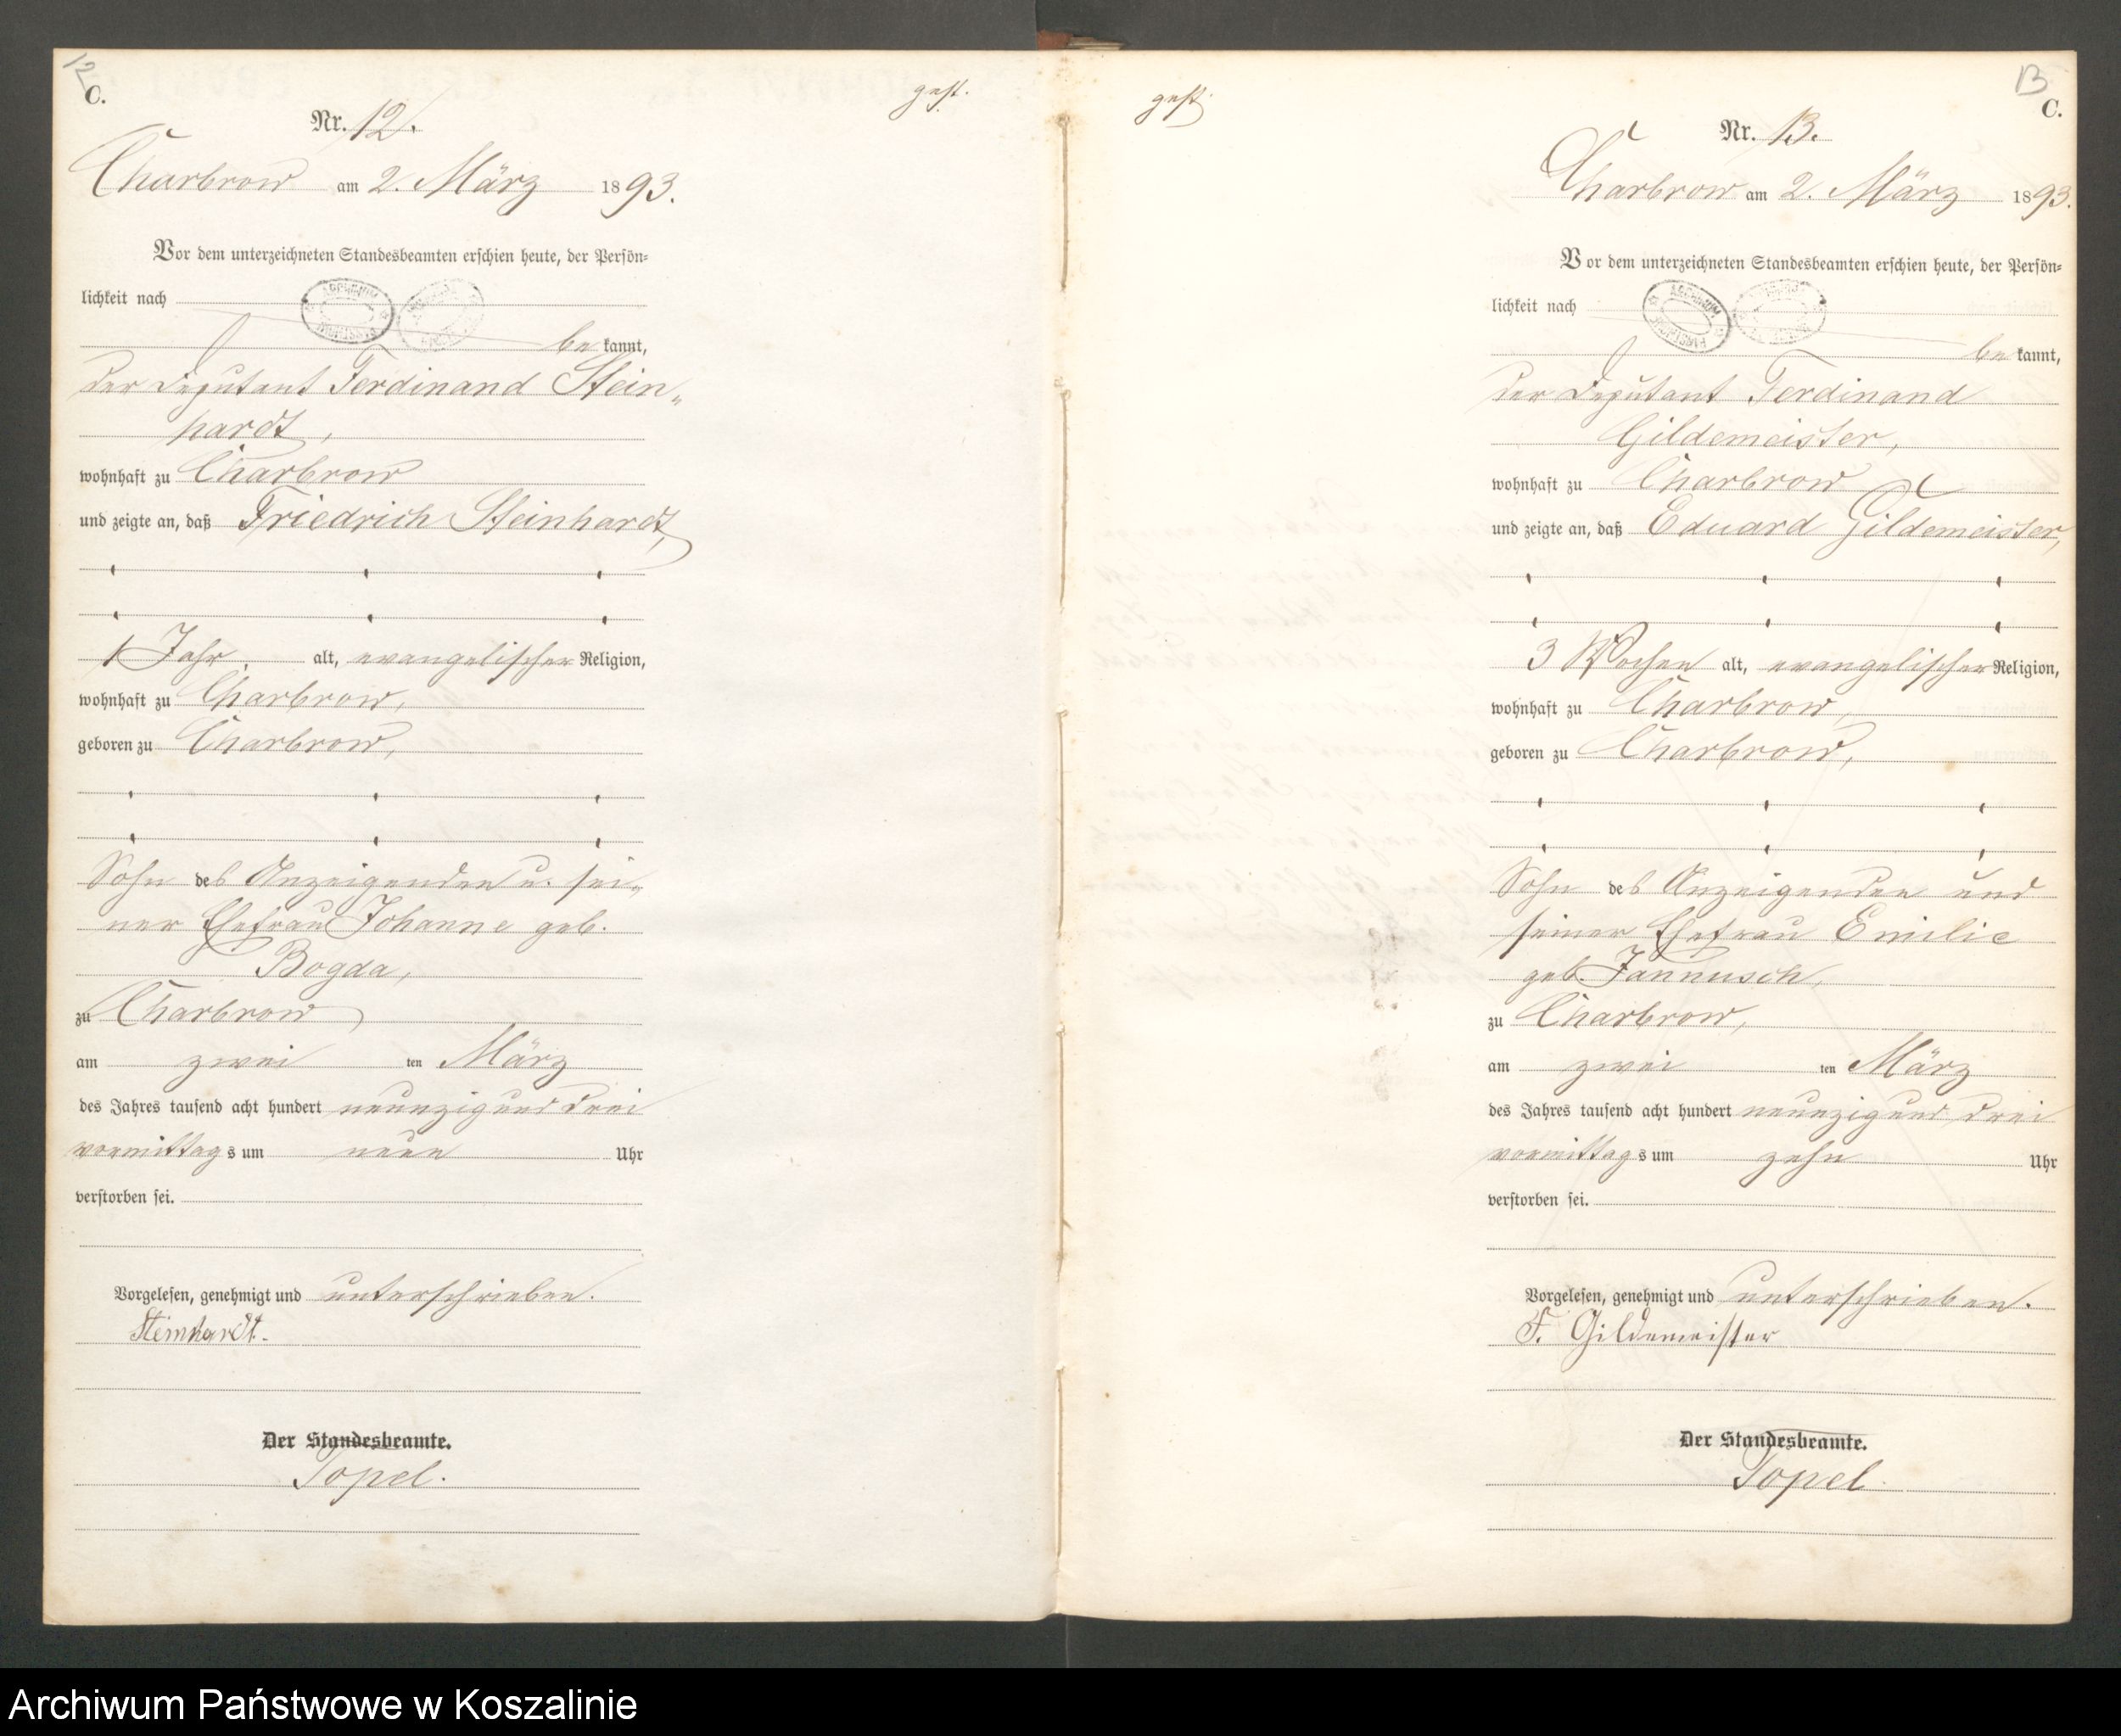 12
C.
gest.
Nr. 12.
Charbrow am 2. März 1893.
Vor dem unterzeichneten Standesbeamten erschien heute, der Persön-
lichkeit nach
be kannt,
der Deputant Ferdinand Stein-
hardt,
wohnhaft zu Charbrow
und zeigte an, daß Friedrich Steinhardt,
1 Jahr alt, evangelischer Religion,
wohnhaft zu Charbrow,
geboren zu Charbrow,
Sohn des Anzeigenden u. sei-
ner Ehefrau Johanne geb.
Bogda,
zu Charbrow
am zwei ten März
des Jahres tausend acht hundert neunzig und drei
vormittags um neun Uhr
verstorben sei.
Vorgelesen, genehmigt und unterschrieben.
Steinhardt.
Der Standesbeamte.
Topel.
gest.
13
C.
Nr. 13.
Charbrow am 2. März 1893.
Vor dem unterzeichneten Standesbeamten erschien heute, der Persön-
lichkeit nach
be kannt,
der Deputant Ferdinand
Gildemeister,
wohnhaft zu Charbrow
und zeigte an, daß Eduard Gildemeister,
3 Wochen alt, evangelischer Religion,
wohnhaft zu Charbrow,
geboren zu Charbrow,
Sohn des Anzeigenden und
seiner Ehefrau Emilie
geb. Jannusch,
zu Charbrow,
am zwei ten März
des Jahres tausend acht hundert neunzig und drei
vormittags um zehn Uhr
verstorben sei.
Vorgelesen, genehmigt und unterschrieben.
F. Gildemeister
Der Standesbeamte.
Topel.
Archiwum Państwowe w Koszalinie